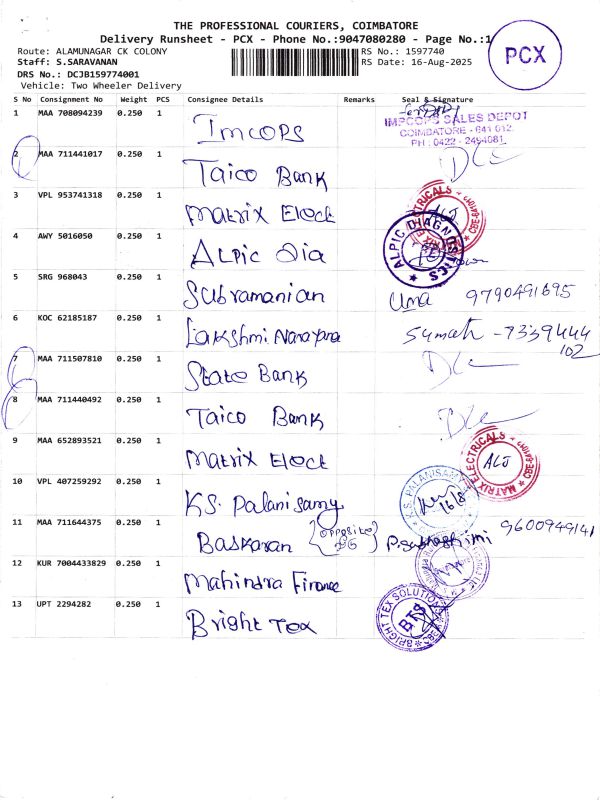 THE PROFESSIONAL COURIERS, COIMBATORE
Delivery Runsheet - PCX - Phone No.:9047080280 - Page No.:1
PCX
Route: ALAMUNAGAR CK COLONY
RS No.: 1597740
Staff: S.SARAVANAN
RS Date: 16-Aug-2025
DRS No.: DCJB159774001
Vehicle: Two Wheeler Delivery
S No Consignment No Weight PCS Consignee Details Remarks Seal & Signature
1 MAA 708094239 0.250 1 Imcops
IMPCOPS SALES DEPOT
COIMBATORE - 641 012.
PH : 0422 - 2494081
2 MAA 711441017 0.250 1 Taico Bank DLC
3 VPL 953741318 0.250 1 Matrix Elect
4 AWY 5016050 0.250 1 Alpic Dia
ALPIC DIAGNOSTICS
5 SRG 968043 0.250 1 Subramanian Uma 9790491695
6 KOC 62185187 0.250 1 Lakshmi Narayana Sumath - 7339444
102
7 MAA 711507810 0.250 1 State Bank DLC
8 MAA 711440492 0.250 1 Taico Bank DLC
9 MAA 652893521 0.250 1 Matrix Elect
MATRIX ELECTRICALS
ALJ
10 VPL 407259292 0.250 1 K.S. Palanisamy
K.S. PALANISAMY
16/8
11 MAA 711644375 0.250 1 Baskaran (opposite 26) 9600949141
12 KUR 7004433829 0.250 1 Mahindra Finance
13 UPT 2294282 0.250 1 Bright Tex
BRIGHT TEX SOLUTION
BTS